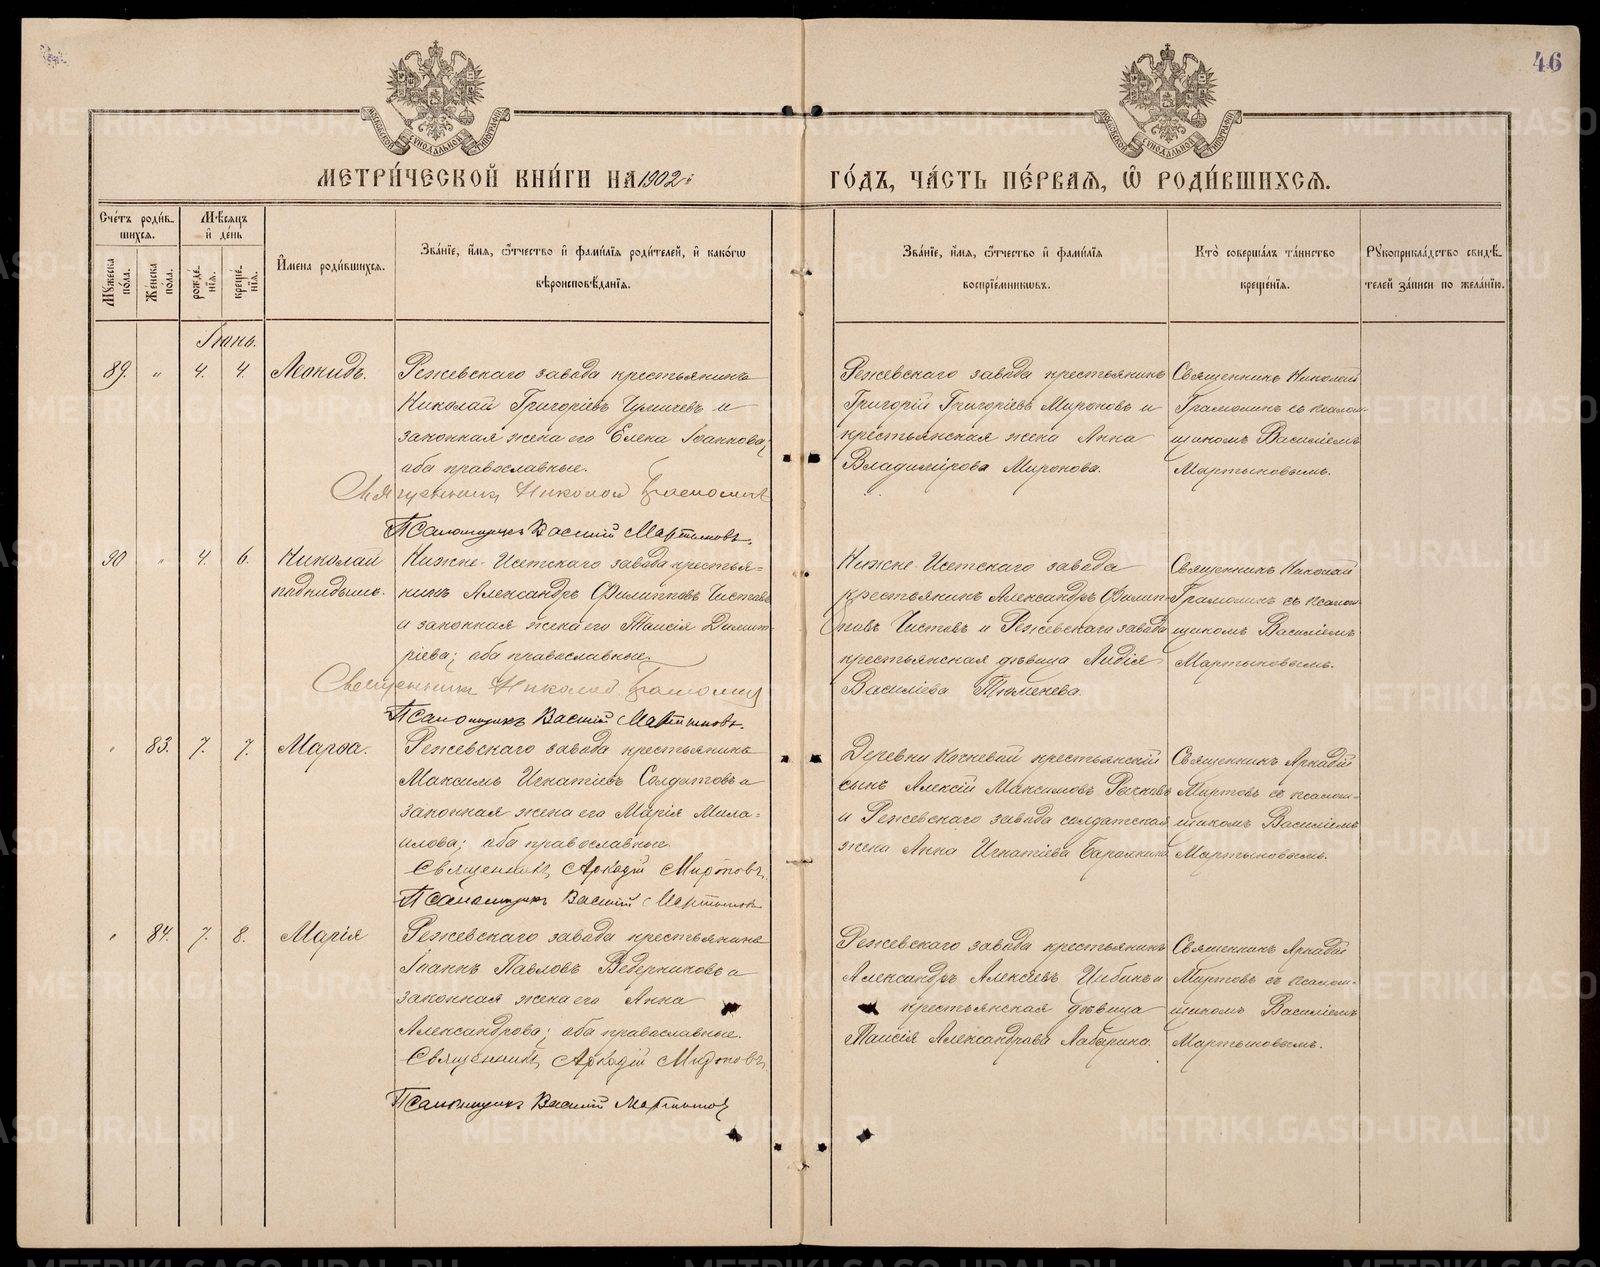 46
МЕТРИ́ЧЕСКОЙ КНИ́ГИ НА 1902й ГО́ДЪ, ЧА́СТЬ ПЕ́РВАЯ, Ѽ РОДИ́ВШИХСЯ.
Сче́тъ роди́в-
шихся.
Мѣ́сяцъ
и̂ де́нь
Му́жеска по́ла.
Же́нска по́ла.
рожде́нїя.
креще́нїя.
И̂мена роди́вшихся.
Зва́нїе, и̂мя, ѻ́тчество и̂ фами́лїя роди́телей, и̂ како́гѡ
вѣроисповѣ́данїя.
Зва́нїе, и̂мя, ѻ́тчество и̂ фами́лїя
воспрїе́мникѡвъ.
Кто̀ соверша́лъ та́инство
креще́нїя.
Рꙋкоприкла́дство свидѣ́-
телей за́писи по жела́нїю.
Іюнь.
89. " 4. 4. Леонидъ.
Режевскаго завода крестьянинъ
Николай Григоріевъ и
законная жена его Елена Іоаннова;
оба православные.
Священникъ Николай
Псаломщикъ Василій Мартыновъ.
Режевскаго завода крестьянинъ
Григорій Григоріевъ Мироновъ и
крестьянская жена Анна
Владимірова Миронова.
Священникъ Николай
Грамолинъ съ псалом-
щикомъ Василіемъ
Мартыновымъ.
90 " 4. 6. Николай
подкидышъ.
Нижне-Исетскаго завода крестья-
нинъ Александръ Филипповъ Чистовъ
и законная жена его Таисія Димит-
ріева; оба православные.
Священникъ Николай
Псаломщикъ Василій Мартыновъ.
Нижне-Исетскаго завода
крестьянинъ Александръ Филип-
повъ Чистовъ и Режевскаго завода
крестьянская дѣвица Лидія
Василіева Тюменева.
Священникъ Николай
Грамолинъ съ псалом-
щикомъ Василіемъ
Мартыновымъ.
" 83. 7. 7. Марѳа.
Режевскаго завода крестьянинъ
Максимъ Игнатіевъ Солдатовъ и
законная жена его Марія
оба православные.
Священникъ Аркадій Миртовъ.
Псаломщикъ Василій Мартыновъ
Деревни Кочневой крестьянскій
сынъ Алексій Максимовъ Рычковъ
и Режевскаго завода солдатская
жена Анна Игнатіева
Священникъ Аркадій
Миртовъ съ псалом-
щикомъ Василіемъ
Мартыновымъ.
" 84. 7. 8. Марія
Режевскаго завода крестьянинъ
Іоаннъ Павловъ Ведерниковъ и
законная жена его Анна
Александрова; оба православные.
Священникъ Аркадій Миртовъ.
Псаломщикъ Василій Мартыновъ
Режевскаго завода крестьянинъ
Александръ Алексѣевъ и
крестьянская дѣвица
Таисія Александрова
Священникъ Аркадій
Миртовъ съ псалом-
щикомъ Василіемъ
Мартыновымъ.
METRIKI.GASO-URAL.RU